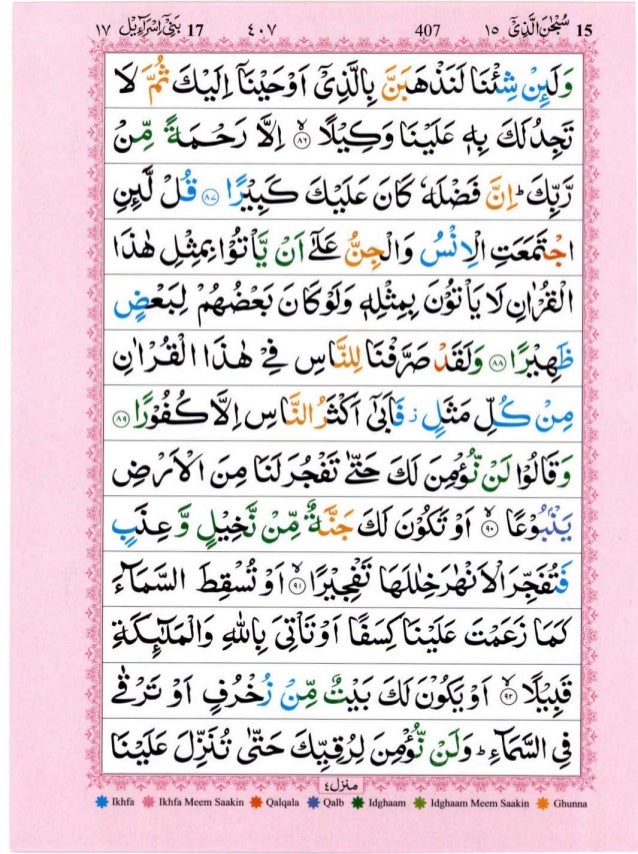 سُبْحٰنَ الَّذِیْۤ ١٥ 15
407
٤٠٧
بَنِیْۤ اِسْرَآءِیْل ١٧ 17
وَلَىِٕنْ شِئْنَا لَنَذْهَبَنَّ بِالَّذِیْۤ اَوْحَیْنَاۤ اِلَیْكَ ثُمَّ لَا
تَجِدُ لَكَ بِهٖ عَلَیْنَا وَكِیْلًاۙ ﴿٨٦﴾ اِلَّا رَحْمَةً مِّنْ
رَّبِّكَؕ اِنَّ فَضْلَهٗ كَانَ عَلَیْكَ كَبِیْرًا ﴿٨٧﴾ قُلْ لَّىِٕنِ
اجْتَمَعَتِ الْاِنْسُ وَالْجِنُّ عَلٰۤی اَنْ یَّاْتُوْا بِمِثْلِ هٰذَا
الْقُرْاٰنِ لَا یَاْتُوْنَ بِمِثْلِهٖ وَلَوْ كَانَ بَعْضُهُمْ لِبَعْضٍ
ظَهِیْرًا ﴿٨٨﴾ وَلَقَدْ صَرَّفْنَا لِلنَّاسِ فِیْ هٰذَا الْقُرْاٰنِ
مِنْ كُلِّ مَثَلٍؗ فَاَبٰۤی اَكْثَرُ النَّاسِ اِلَّا كُفُوْرًا ﴿٨٩﴾
وَقَالُوْا لَنْ نُّؤْمِنَ لَكَ حَتّٰی تَفْجُرَ لَنَا مِنَ الْاَرْضِ
یَنْۢبُوْعًاۙ ﴿٩٠﴾ اَوْ تَكُوْنَ لَكَ جَنَّةٌ مِّنْ نَّخِیْلٍ وَّعِنَبٍ
فَتُفَجِّرَ الْاَنْهٰرَ خِلٰلَهَا تَفْجِیْرًاۙ ﴿٩١﴾ اَوْ تُسْقِطَ السَّمَآءَ
كَمَا زَعَمْتَ عَلَیْنَا كِسَفًا اَوْ تَاْتِیَ بِاللّٰهِ وَالْمَلٰٓىِٕكَةِ
قَبِیْلًاۙ ﴿٩٢﴾ اَوْ یَكُوْنَ لَكَ بَیْتٌ مِّنْ زُخْرُفٍ اَوْ تَرْقٰی
فِی السَّمَآءِؕ وَلَنْ نُّؤْمِنَ لِرُقِیِّكَ حَتّٰی تُنَزِّلَ عَلَیْنَا
منزل٤
Ikhfa Ikhfa Meem Saakin Qalqala Qalb Idghaam Idghaam Meem Saakin Ghunna